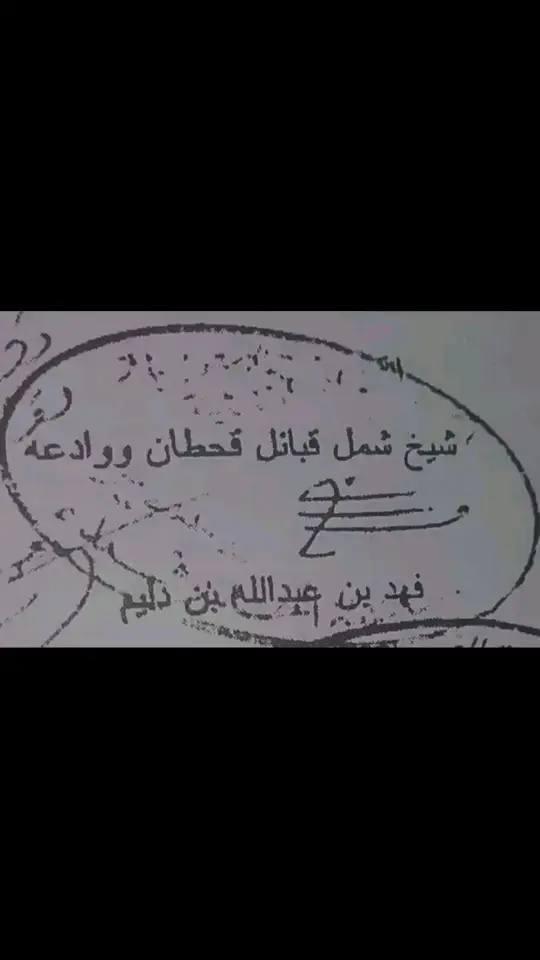 شيخ شمل قبائل قحطان ووادعه
فهد بن عبدالله بن دليم